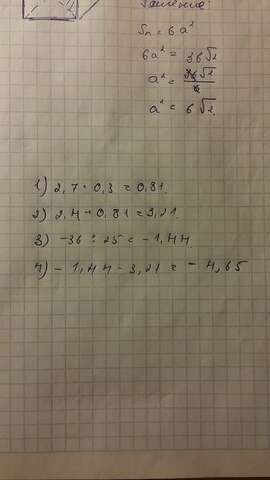 Решение:
Sп = 6a²
6a² = 36√2
a² = 36√2/6
a² = 6√2
1) 2,7 · 0,3 = 0,81
2) 2,4 + 0,81 = 3,21
3) -36 : 25 = -1,44
4) -1,44 - 3,21 = -4,65